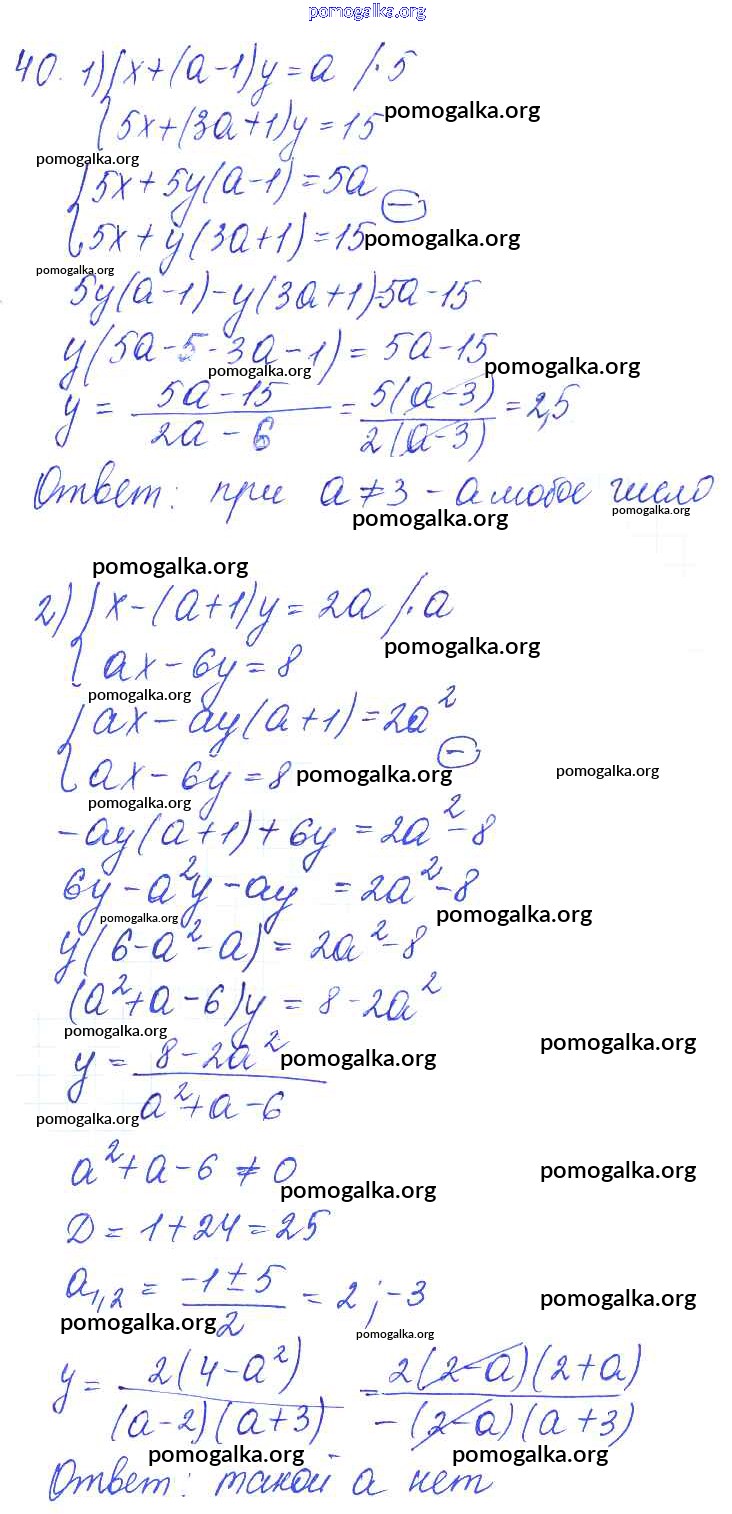 pomogalka.org
40. 1) { x+(a-1)y=a /·5
5x+(3a+1)y=15 pomogalka.org
pomogalka.org
{ 5x+5y(a-1)=5a
5x+y(3a+1)=15 (-) pomogalka.org
pomogalka.org
5y(a-1)-y(3a+1)=5a-15
y(5a-5-3a-1)=5a-15
pomogalka.org pomogalka.org
y = (5a-15)/(2a-6) = 5(a-3)/2(a-3) = 2,5
Ответ: при a≠3 - a любое число
pomogalka.org pomogalka.org
pomogalka.org
2) { x-(a+1)y=2a /·a
pomogalka.org
ax-6y=8
pomogalka.org
{ ax-ay(a+1)=2a²
ax-6y=8 (-) pomogalka.org pomogalka.org
pomogalka.org
-ay(a+1)+6y=2a²-8
6y-a²y-ay =2a²-8
pomogalka.org pomogalka.org
y(6-a²-a)=2a²-8
(a²+a-6)y=8-2a²
pomogalka.org pomogalka.org
y = (8-2a²)/(a²+a-6) pomogalka.org
pomogalka.org
a²+a-6≠0
pomogalka.org pomogalka.org
D=1+24=25
a₁,₂ = (-1±5)/2 = 2; -3 pomogalka.org
pomogalka.org pomogalka.org
y = 2(4-a²)/(a-2)(a+3) = 2(2-a)(2+a)/-(2-a)(a+3)
pomogalka.org pomogalka.org
Ответ: такой a нет